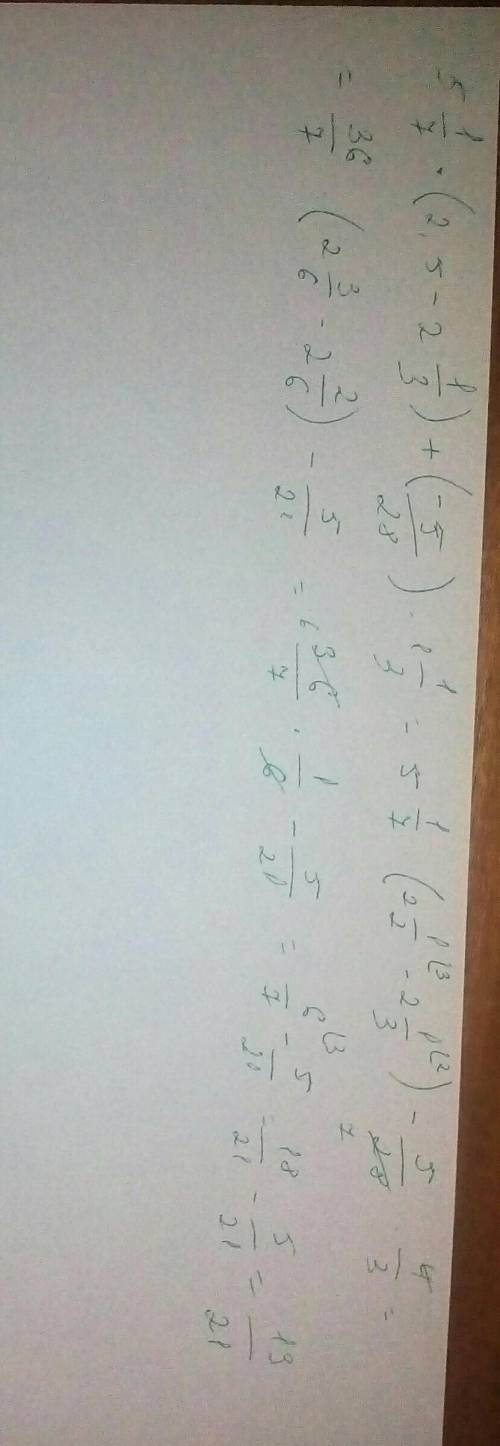 5 1/7 · (2,5 - 2 1/3) + (-5/28) · 1 1/3 = 5 1/7 (2 1/2 \3 - 2 1/3 \2) - 5/28 7 · 4/3 =
= 36/7 (2 3/6 - 2 2/6) - 5/21 = 6 36/7 · 1/6 - 5/21 = 6/7 \3 - 5/21 = 18/21 - 5/21 = 13/21